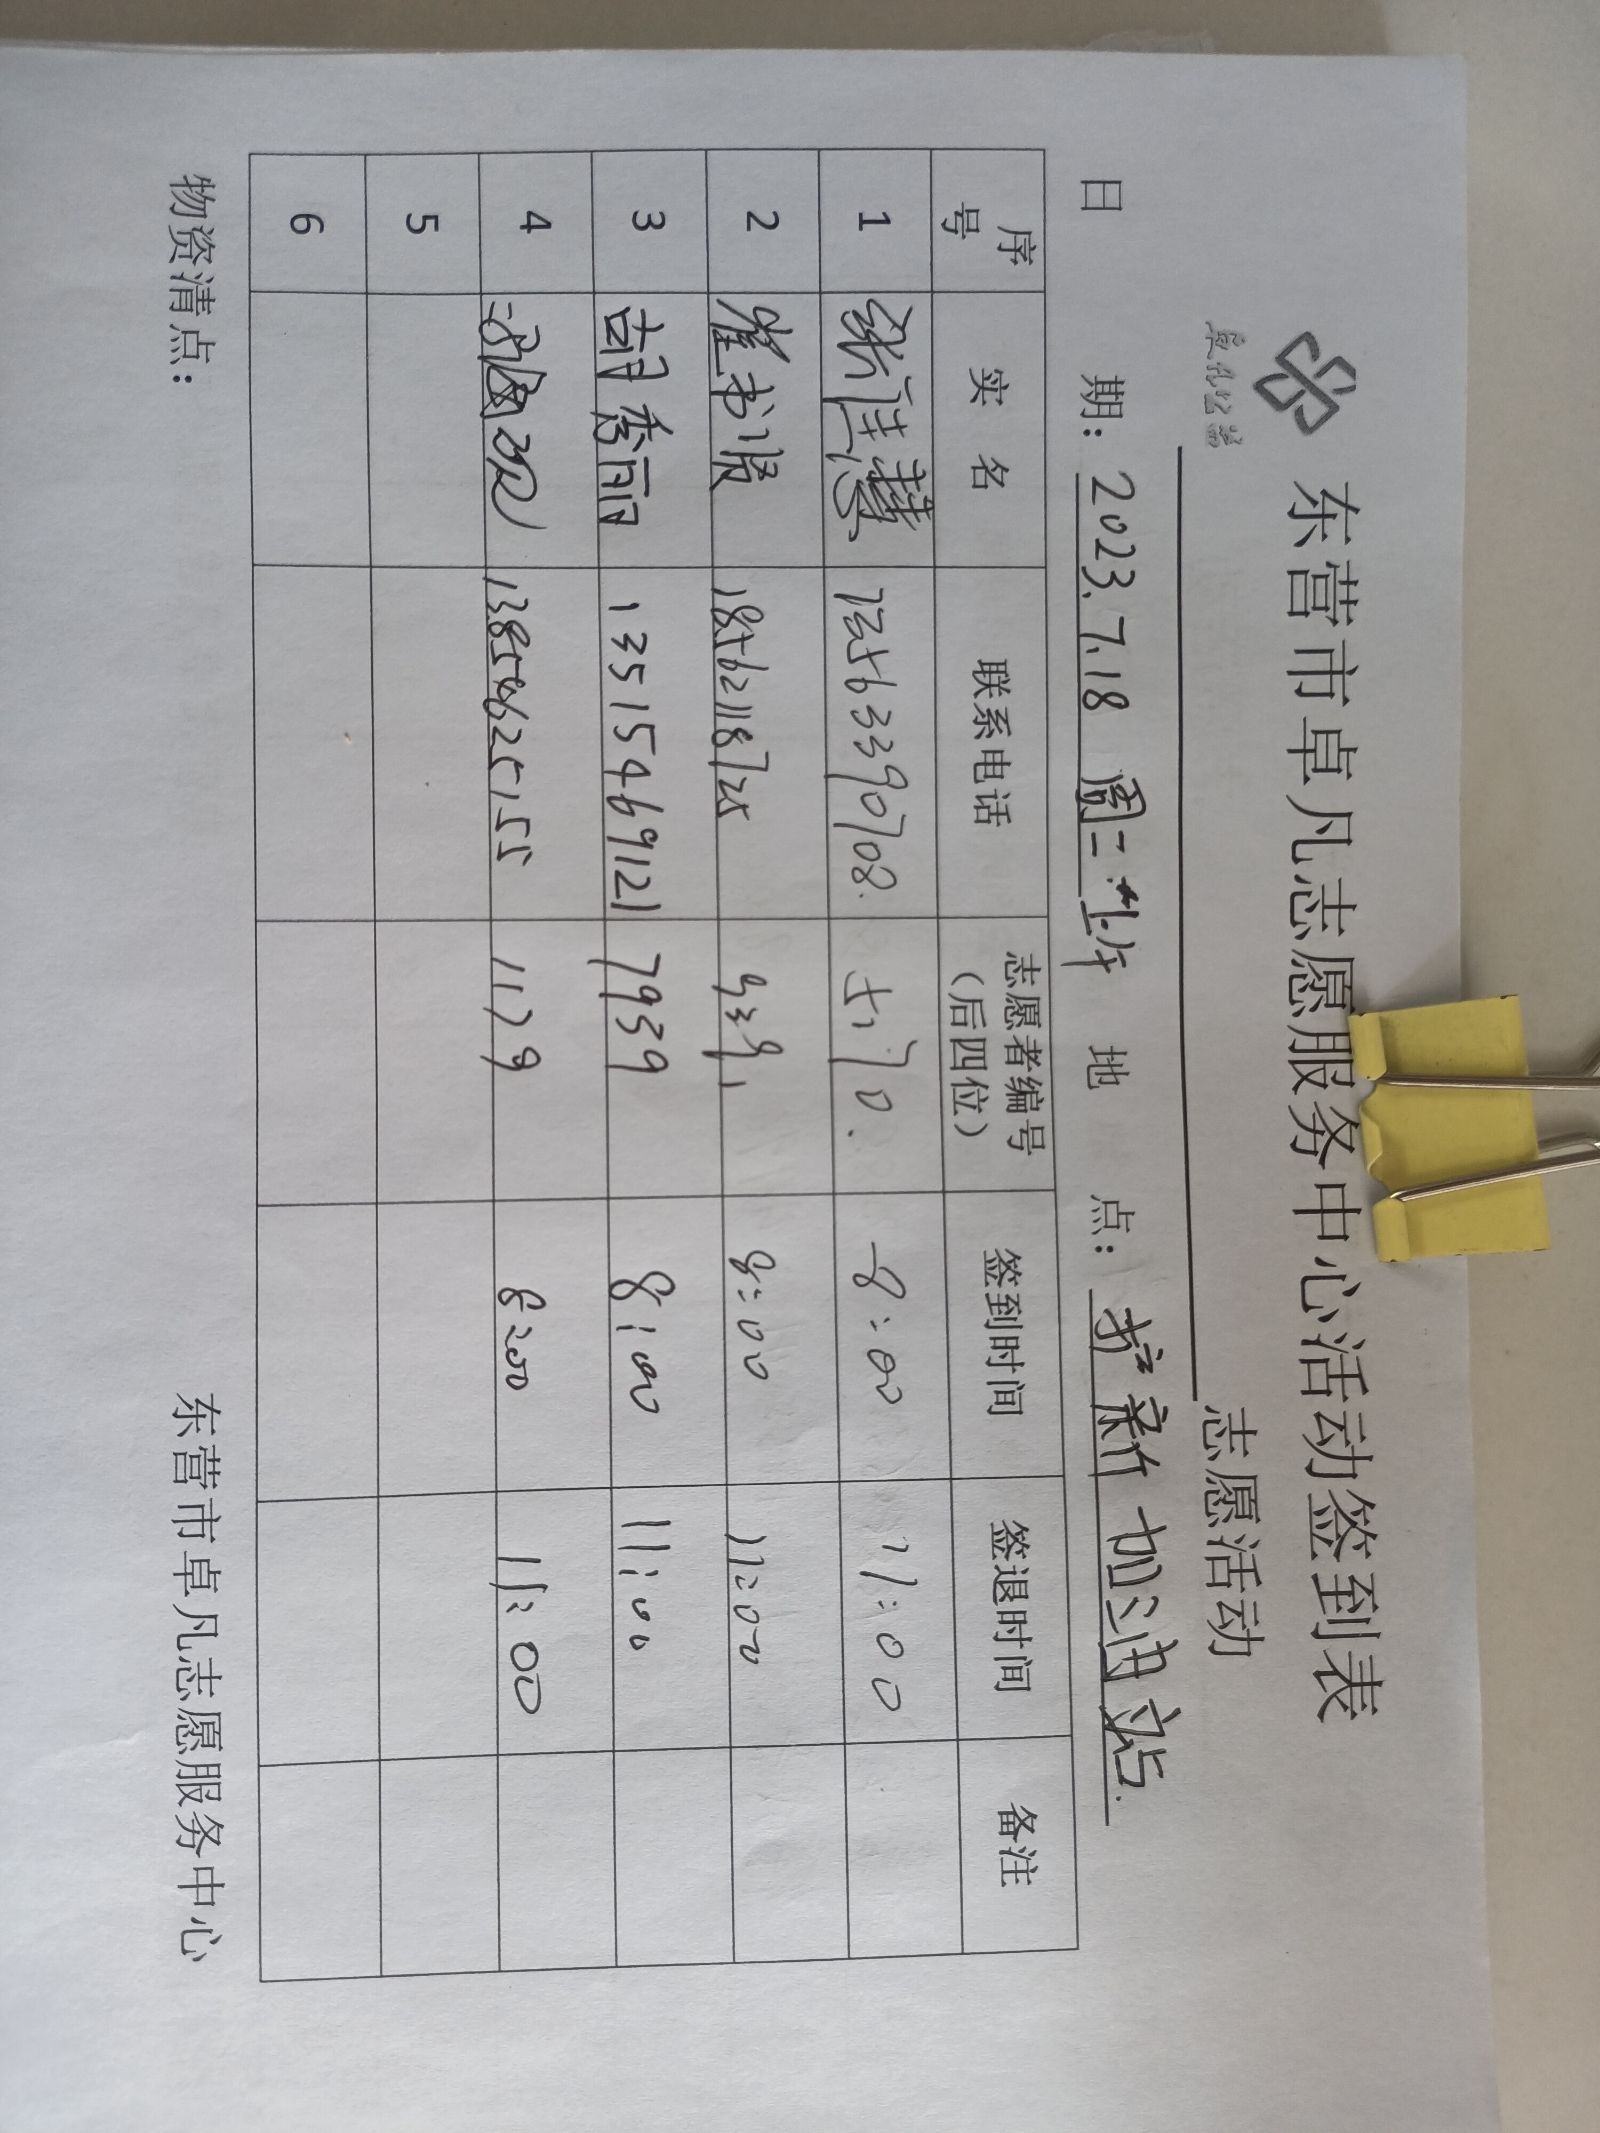 东营市卓凡志愿服务中心活动签到表
卓凡公益
志愿活动
日 期：2023.7.18 周二上午 地 点：拧新加油站.
序号 实 名 联系电话 志愿者编号（后四位） 签到时间 签退时间 备注
1 张延慧 13563390708. 5170. 8:00 11:00
2 崔书贤 18562118725 9391 8:00 11:00
3 胡秀丽 13515469121 7939 8:00 11:00
4 13854625155 1179 8:00 11:00
5
6
物资清点：
东营市卓凡志愿服务中心